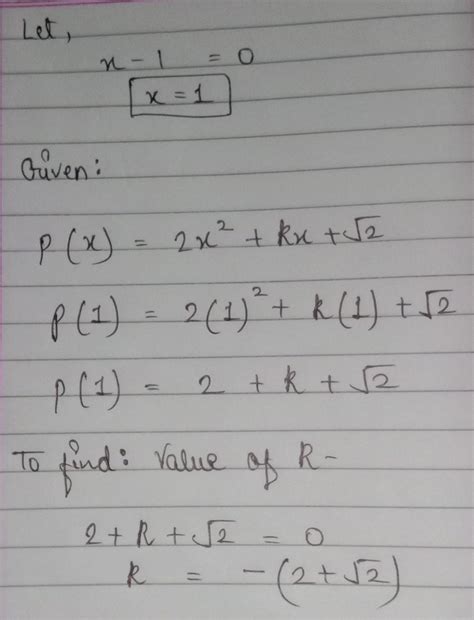 Let,
x - 1 = 0
x = 1
Given:
p(x) = 2x² + kx + √2
p(1) = 2(1)² + k(1) + √2
p(1) = 2 + k + √2
To find: Value of k-
2 + k + √2 = 0
k = -(2 + √2)